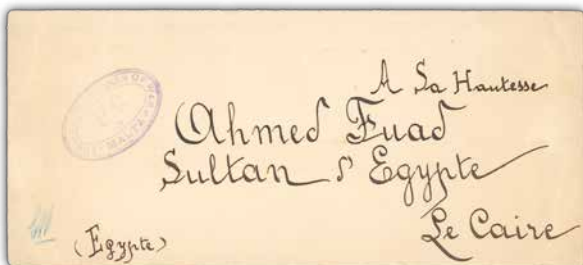 A Sa Hautesse
Ahmed Fuad
Sultan d'Egypte
Le Caire
(Egypte)
MALTA